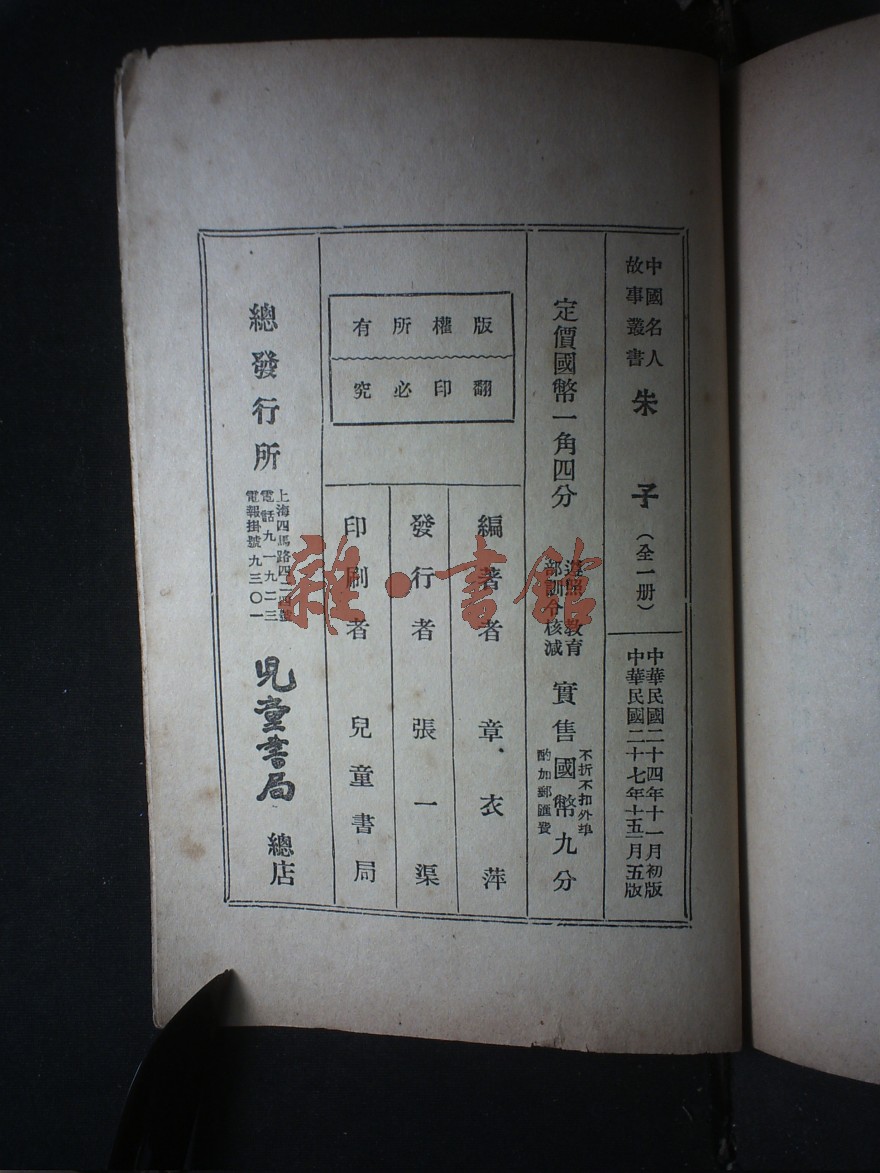 中國名人
故事叢書
朱子（全一册）
中華民國二十四年十一月初版
中華民國二十七年十一月五版
定價國幣一角四分
遵照教育
部訓令核減
實售國幣九分
不折不扣外埠
酌加郵匯費
版權所有
翻印必究
編著者 章衣萍
發行者 張一渠
印刷者 兒童書局
總發行所
上海四馬路四二四號
電話九一九二三
電報掛號九三〇一
兒童書局 總店
雜·書館